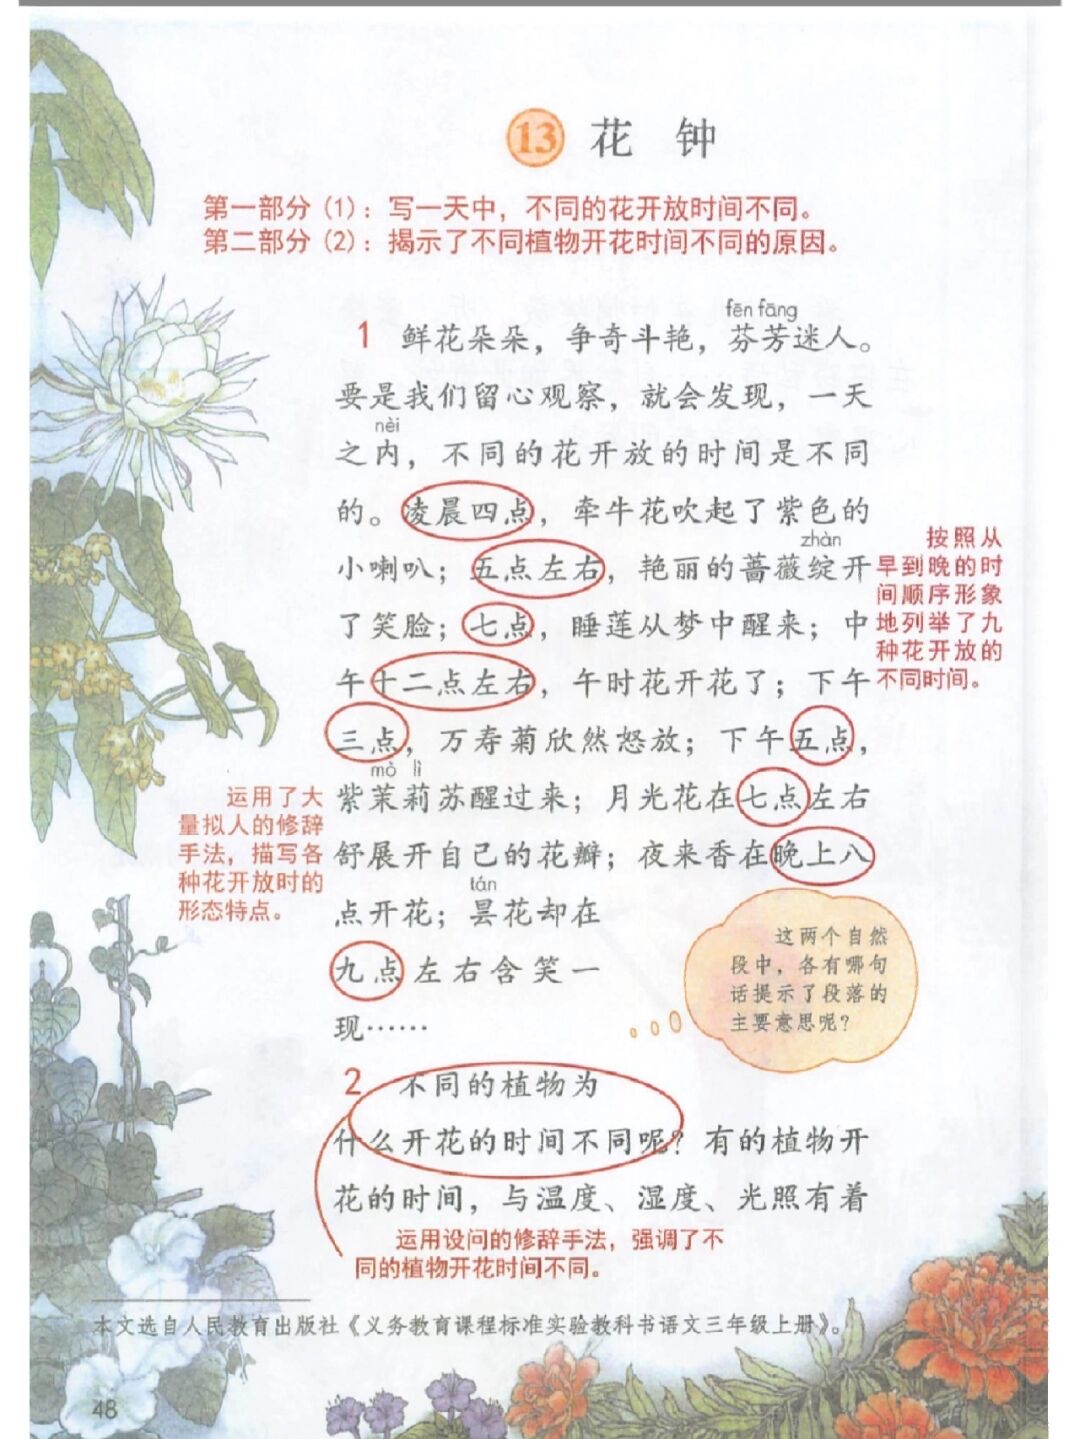 13 花 钟
第一部分（1）：写一天中，不同的花开放时间不同。
第二部分（2）：揭示了不同植物开花时间不同的原因。
fēn fāng
1 鲜花朵朵，争奇斗艳，芬芳迷人。
要是我们留心观察，就会发现，一天
nèi
之内，不同的花开放的时间是不同
的。凌晨四点，牵牛花吹起了紫色的
zhàn
小喇叭；五点左右，艳丽的蔷薇绽开
了笑脸；七点，睡莲从梦中醒来；中
午十二点左右，午时花开花了；下午
三点，万寿菊欣然怒放；下午五点，
mò lì
紫茉莉苏醒过来；月光花在七点左右
舒展开自己的花瓣；夜来香在晚上八
tán
点开花；昙花却在
九点左右含笑一
现……
按照从
早到晚的时
间顺序形象
地列举了九
种花开放的
不同时间。
运用了大
量拟人的修辞
手法，描写各
种花开放时的
形态特点。
这两个自然
段中，各有哪句
话提示了段落的
主要意思呢？
2 不同的植物为
什么开花的时间不同呢？有的植物开
花的时间，与温度、湿度、光照有着
运用设问的修辞手法，强调了不
同的植物开花时间不同。
本文选自人民教育出版社《义务教育课程标准实验教科书语文三年级上册》。
48